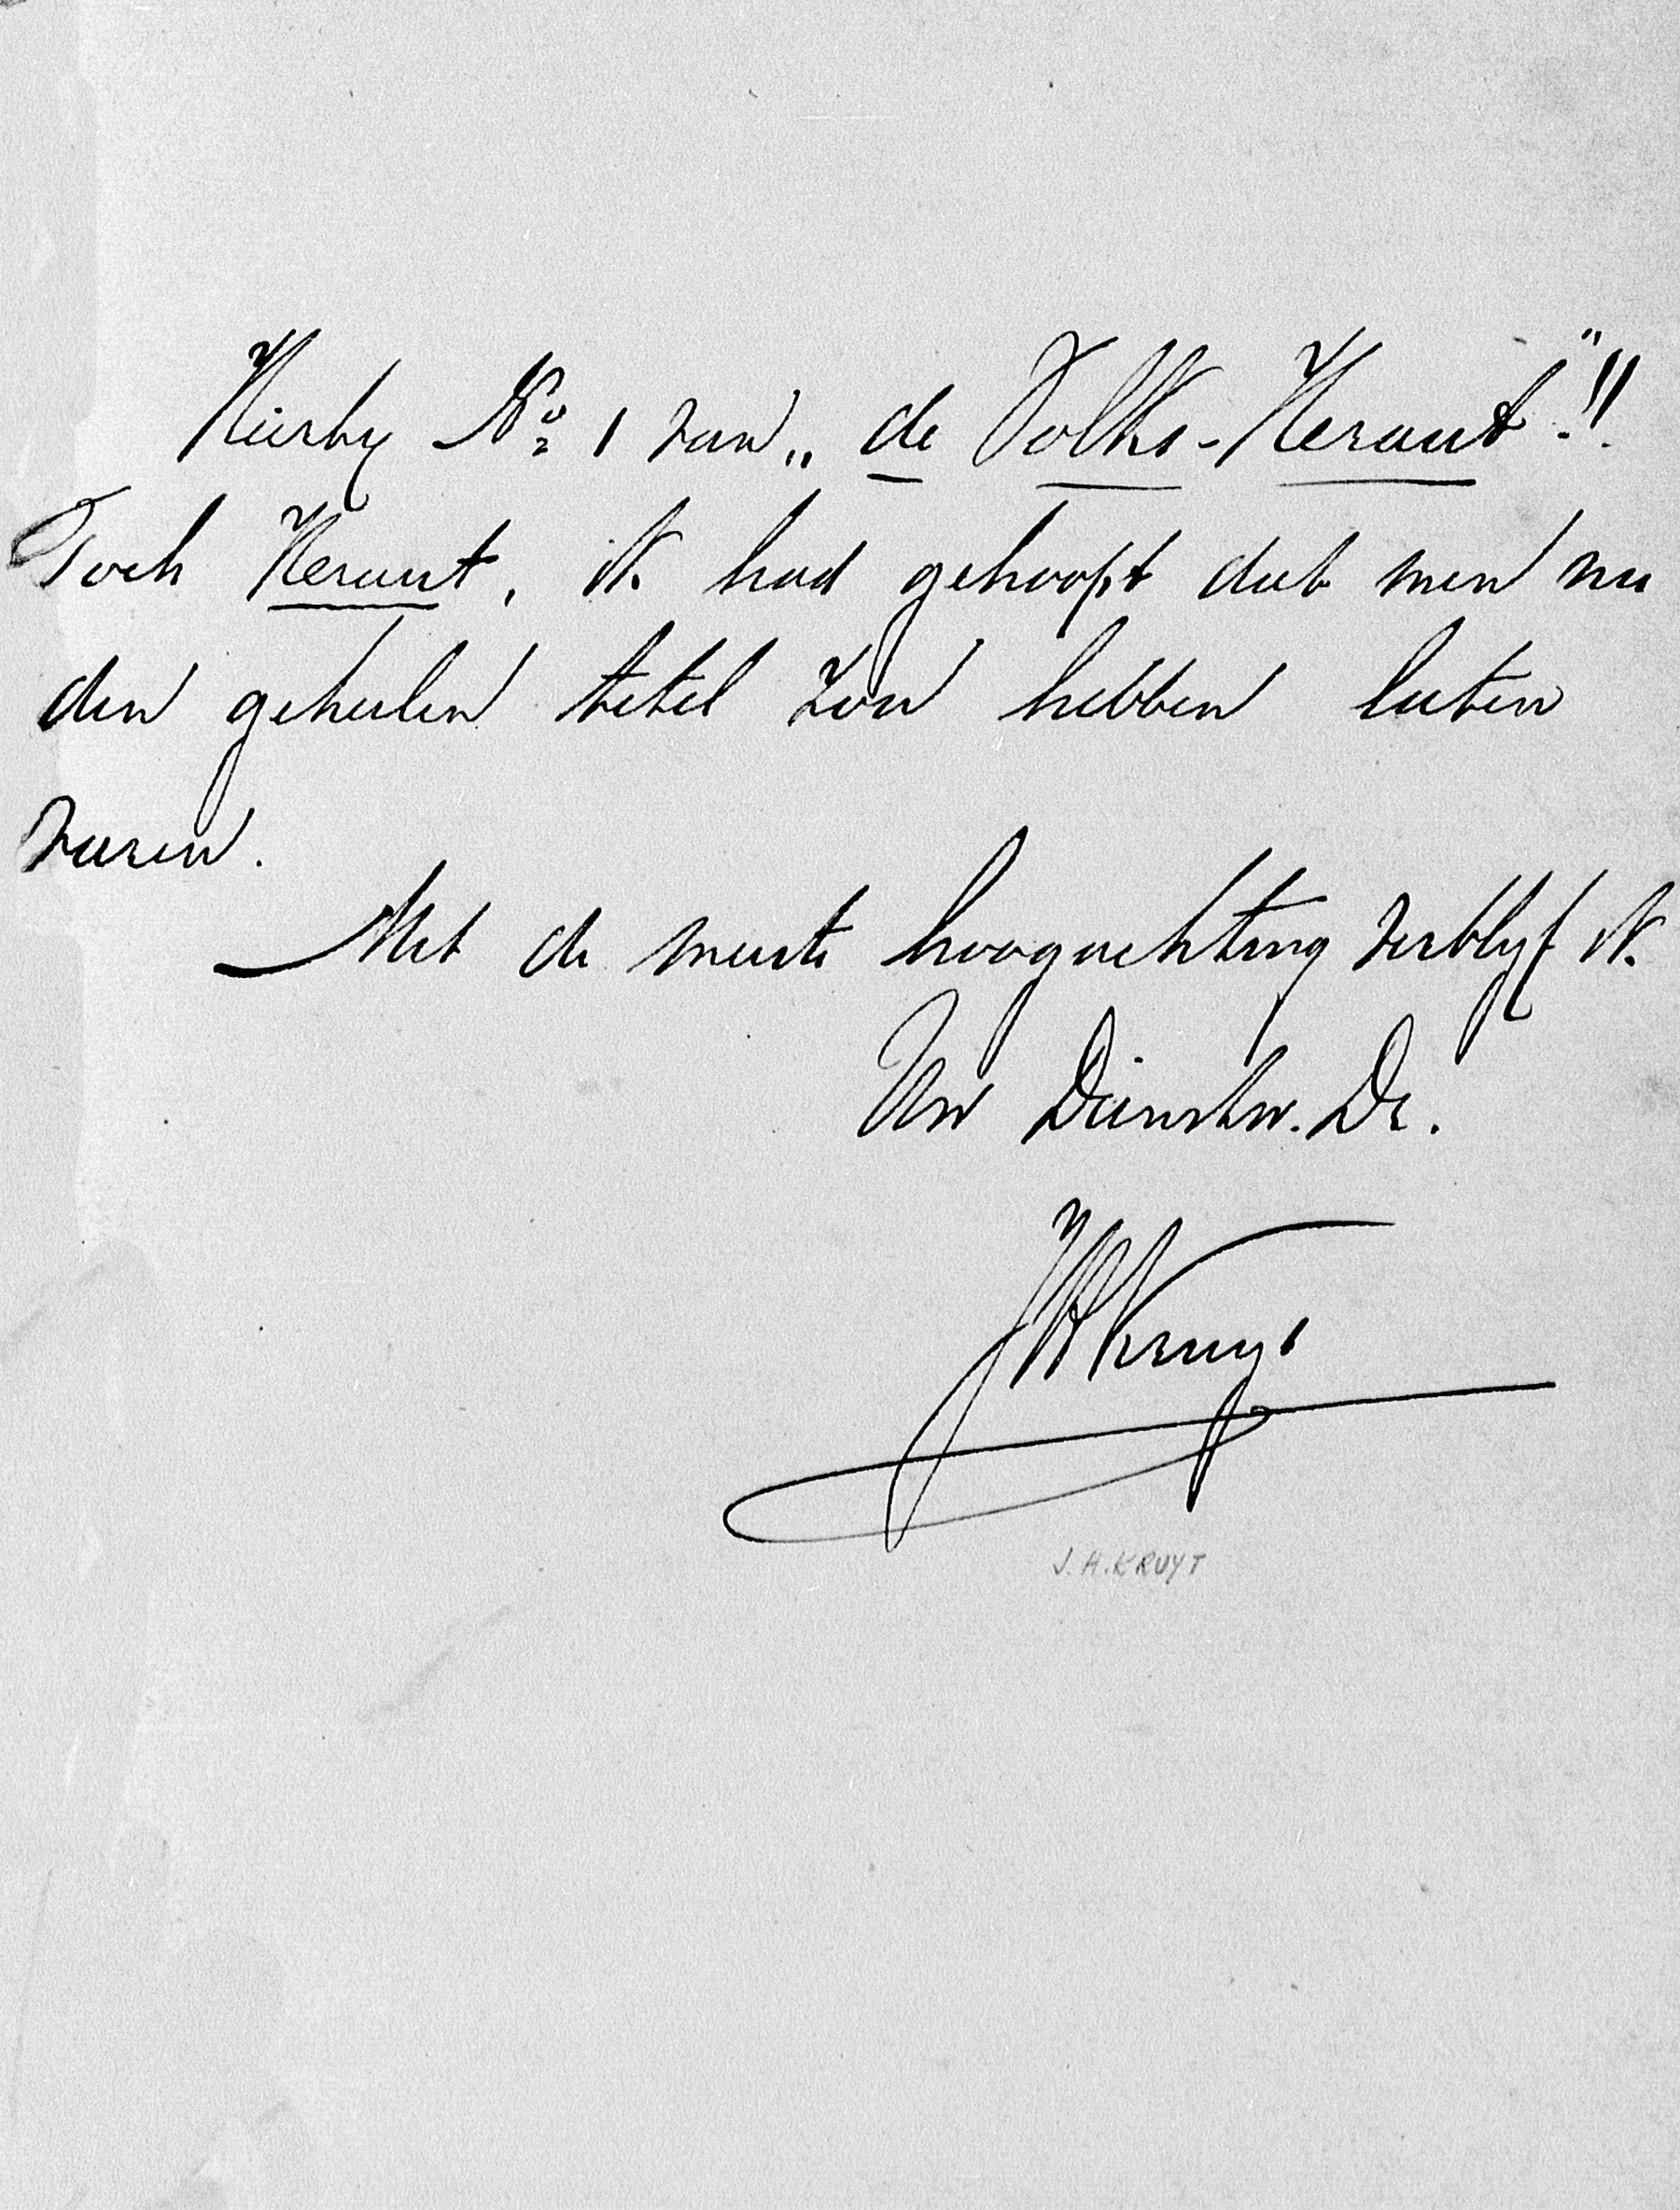 Hierby No. 1 van „de Volks-Heraut"!!
Toch Heraut, ik had gehoopt dat men nu
den geheelen titel zou hebben laten
varen.
Met de meeste hoogachting verblyf ik.
Uw Dienstw. Dr.
JHKruyt
J.H.KRUYT